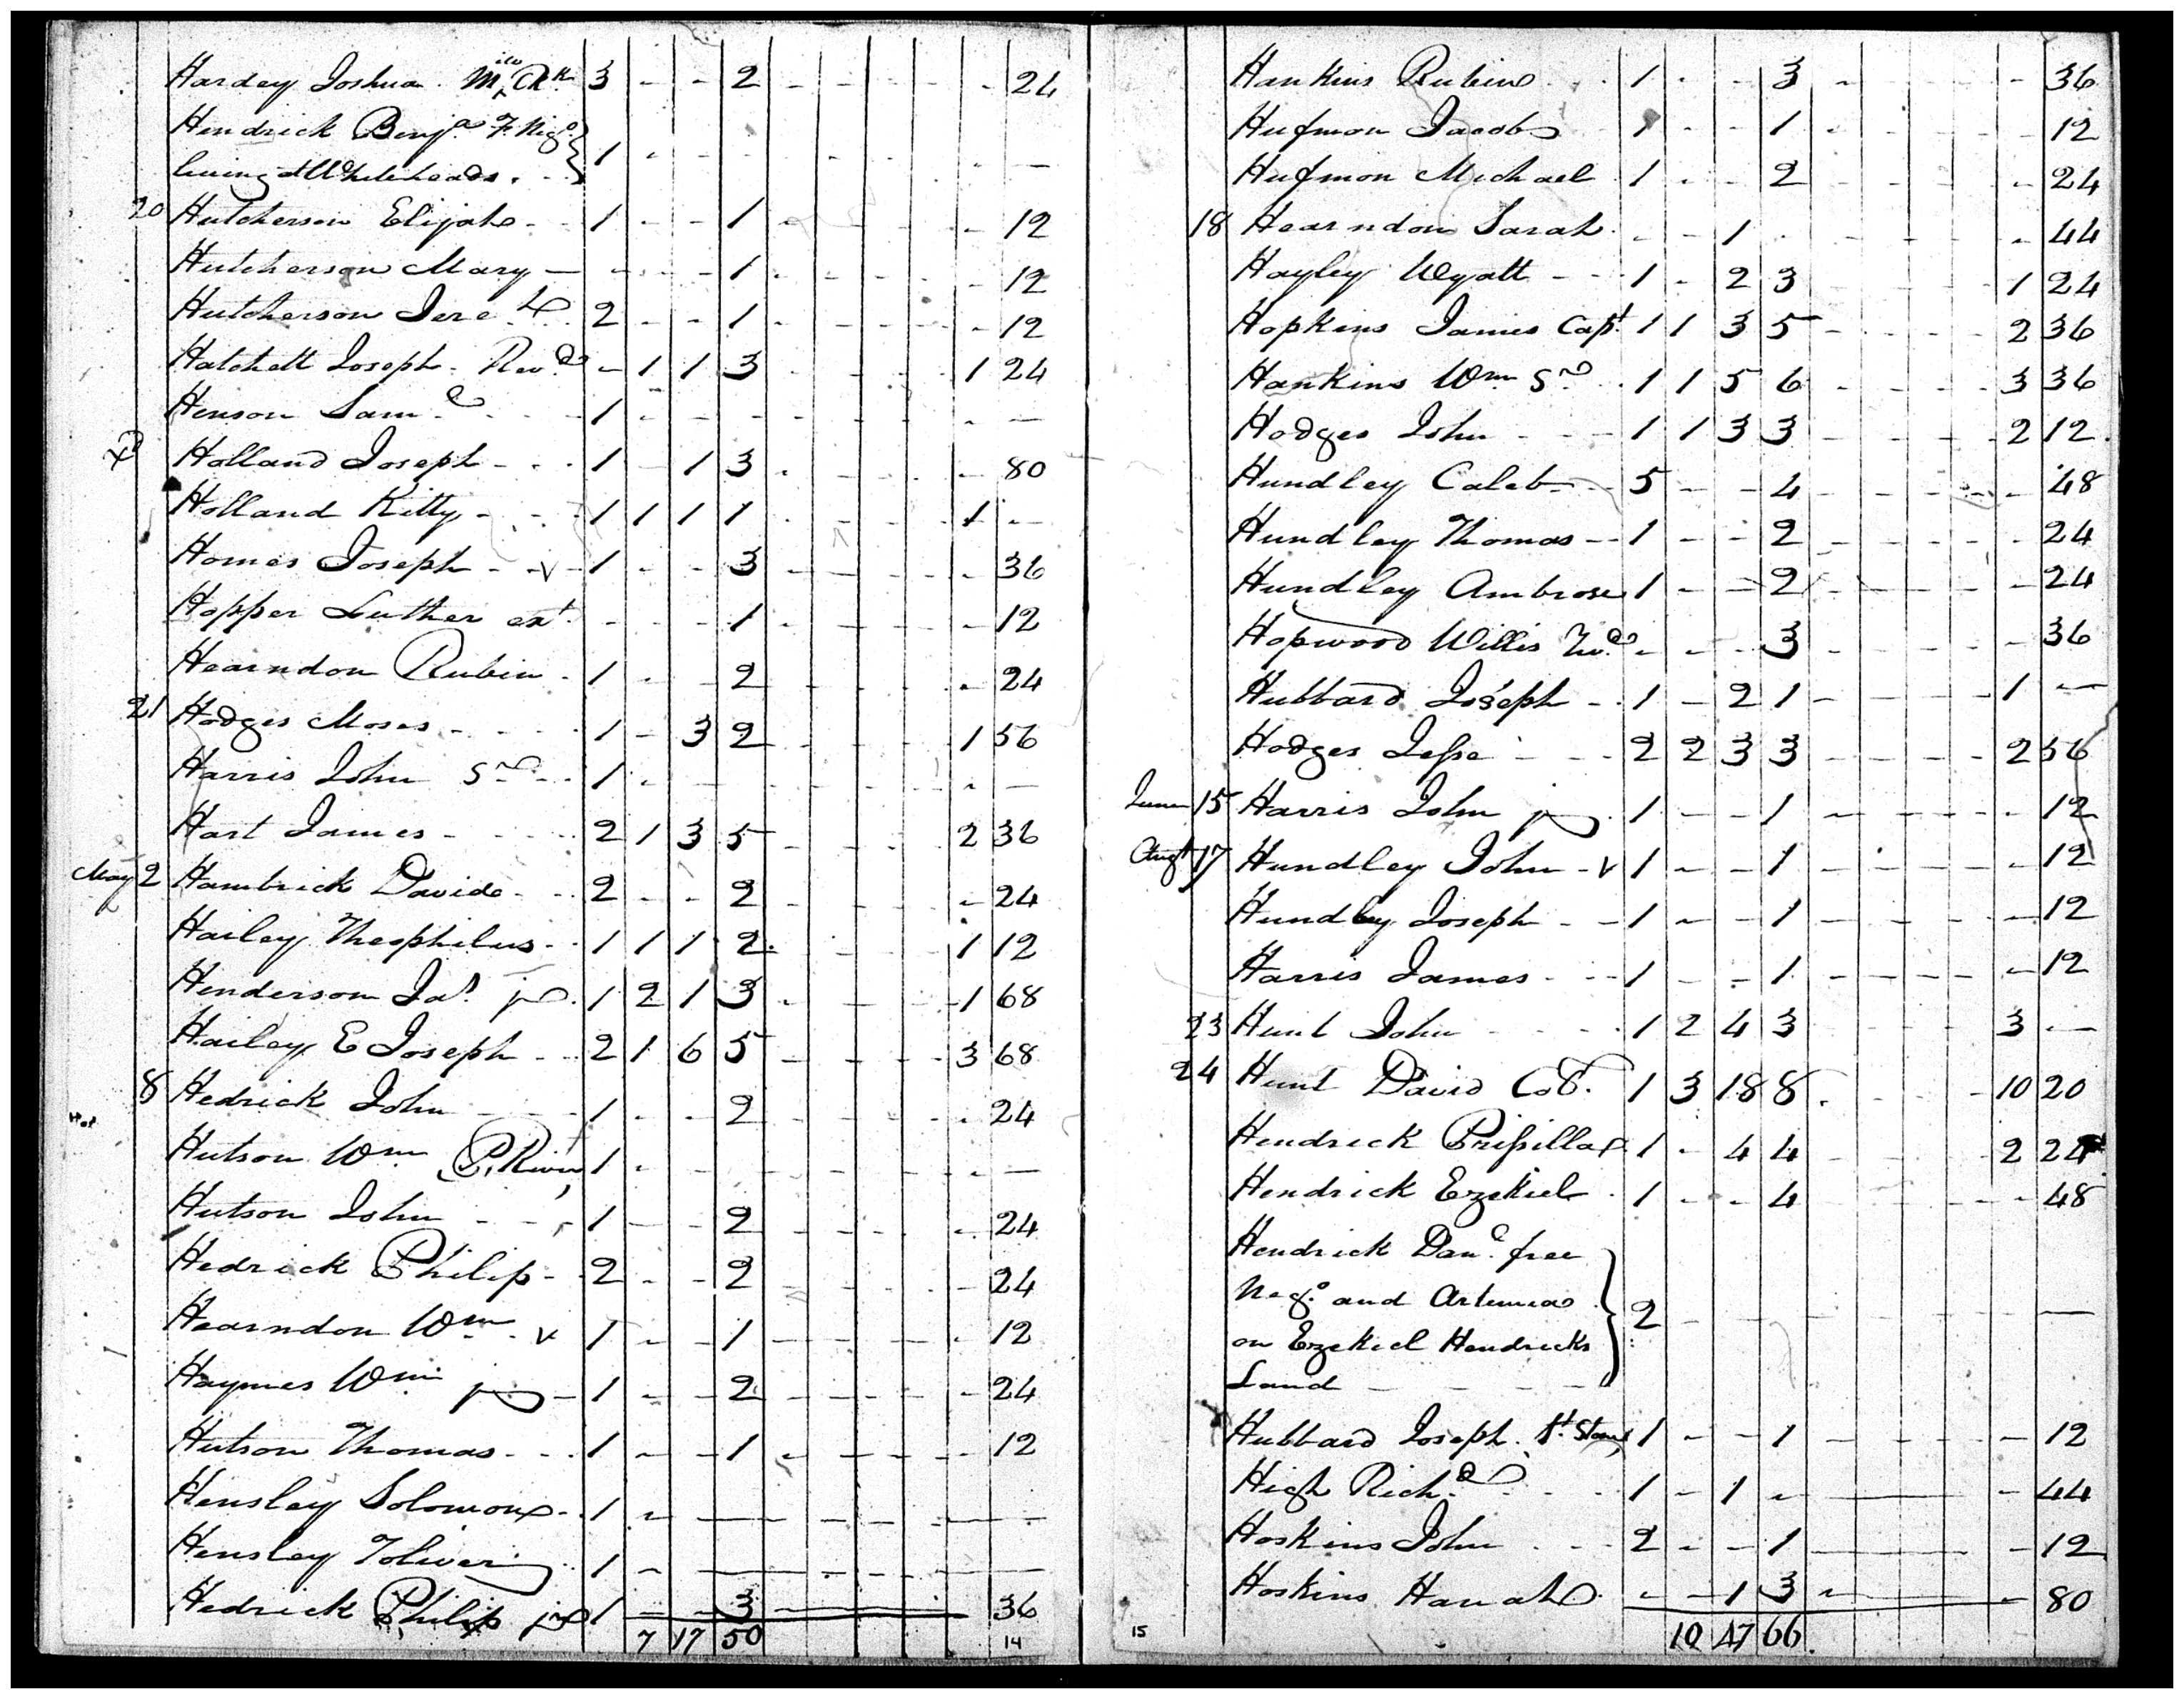 Hardey Joshua. M Ck 3 - - 2 - - - - - 24
Hendrick Benja. F. Nego.
living at Whiteheads. 1 - - - - - - - - —
20 Hutcherson Elijah - 1 - - 1 - - - - - 12
Hutcherson Mary — - - - 1 - - - - - 12
Hutcherson Jere. 2 - - 1 - - - - - 12
Hatchett Joseph. Revd. - 1 1 3 - - - - 1 24
Henson Saml. 1 - - - - - - - - —
Holland Joseph - 1 - 1 3 - - - - - 80
Holland Kitty - 1 1 1 1 - - - - 1 —
Homes Joseph - v 1 - - 3 - - - - - 36
Hopper Luther ext. - - - 1 - - - - - 12
Hearndon Rubin - 1 - - 2 - - - - - 24
21 Hodges Moses - 1 - 3 2 - - - - 1 56
Harris John Sr. 1 - - - - - - - - —
Hart James - 2 1 3 5 - - - - 2 36
May 2 Hambrick David - 2 - - 2 - - - - - 24
Hailey Theophilus - 1 1 1 2 - - - - 1 12
Henderson Jas. jr. 1 2 1 3 - - - - 1 68
Hailey E Joseph - 2 1 6 5 - - - - 3 68
8 Hedrick John - 1 - - 2 - - - - - 24
Hutson Wm P. River 1 - - - - - - - - —
Hutson John - 1 - - 2 - - - - - 24
Hedrick Philip - 2 - - 2 - - - - - 24
Hearndon Wm v 1 - - 1 - - - - - 12
Haymes Wm jr - 1 - - 2 - - - - - 24
Hutson Thomas - 1 - - 1 - - - - - 12
Hensley Solomon - 1 - - - - - - - - —
Hensley Toliver 1 - - - - - - - - —
Hedrick Philip jr 1 - - 3 - - - - - 36
7 17 50
14
Hankins Rubin 1 - - 3 - - - - - 36
Hufmon Jacob 1 - - 1 - - - - - 12
Hufmon Michael 1 - - 2 - - - - - 24
18 Hearndon Sarah - - 1 - - - - - - 44
Hayley Wyatt - 1 - 2 3 - - - - 1 24
Hopkins James Capt. 1 1 3 5 - - - - 2 36
Hankins Wm Sr. 1 1 5 6 - - - - 3 36
Hodges John - 1 1 3 3 - - - - 2 12
Hundley Caleb - 5 - - 4 - - - - - 48
Hundley Thomas - 1 - - 2 - - - - - 24
Hundley Ambrose 1 - - 2 - - - - - 24
Hopwood Willis - - - 3 - - - - - 36
Hubbard Joseph - 1 - 2 1 - - - - 1 —
Hodges Jesse - 2 2 3 3 - - - - 2 56
June 15 Harris John jr 1 - - 1 - - - - - 12
Augt 17 Hundley John - v 1 - - 1 - - - - - 12
Hundley Joseph - 1 - - 1 - - - - - 12
Harris James - 1 - - 1 - - - - - 12
23 Hunt John - 1 2 4 3 - - - - 3 —
24 Hunt David Col. 1 3 18 8 - - - - 10 20
Hendrick Prisilla 1 - 4 4 - - - - 2 24
Hendrick Ezekiel 1 - - 4 - - - - - 48
Hendrick Danl. free
Nego. and Artemia
on Ezekiel Hendricks 2 - - - - - - - - —
Land - - - -
Hubbard Joseph. 1 - - 1 - - - - - 12
High Richd. 1 - 1 - - - - - - 44
Hoskins John - 2 - - 1 - - - - - 12
Hoskins Hanah - - 1 3 - - - - - 80
10 47 66
15